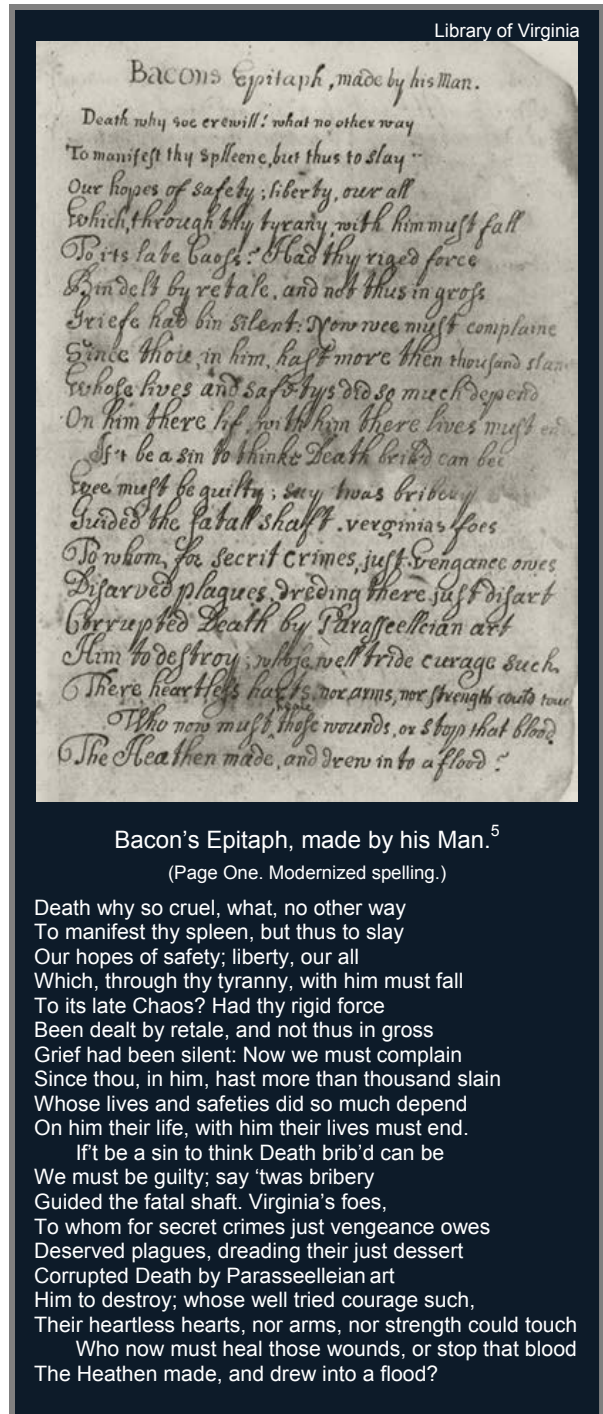 Library of Virginia
Bacons Epitaph, made by his Man.
Death why soe crewill! what no other way
To manifest thy spleene, but thus to slay
Our hopes of safety; liberty, our all
Which, through thy tyrany, with him must fall
To its late Caoss? Had thy riged force
Bin delt by retale, and not thus in gross
Griefe had bin silent: Now wee must complaine
Since thou, in him, hast more then thousand slan
Whose lives and safetys did so much depend
On him there lif, with him there lives must en
If't be a sin to thinke Death brib'd can bee
Wee must be guilty; say twas bribery
Guided the fatall shaft. verginias foes
To whom, for secrit crimes, just vengance owes
Disarved plagues, dreding there just disart
Corrupted Death by Parasseelleian art
Him to destroy; whose well tride curage such,
There heartless harts, nor arms, nor strength could touc
Who now must heale those wounds, or stop that blood
The Heathen made, and drew in to a flood?
Bacon's Epitaph, made by his Man.5
(Page One. Modernized spelling.)
Death why so cruel, what, no other way
To manifest thy spleen, but thus to slay
Our hopes of safety; liberty, our all
Which, through thy tyranny, with him must fall
To its late Chaos? Had thy rigid force
Been dealt by retale, and not thus in gross
Grief had been silent: Now we must complain
Since thou, in him, hast more than thousand slain
Whose lives and safeties did so much depend
On him their life, with him their lives must end.
If't be a sin to think Death brib'd can be
We must be guilty; say 'twas bribery
Guided the fatal shaft. Virginia's foes,
To whom for secret crimes just vengeance owes
Deserved plagues, dreading their just dessert
Corrupted Death by Parasseelleian art
Him to destroy; whose well tried courage such,
Their heartless hearts, nor arms, nor strength could touch
Who now must heal those wounds, or stop that blood
The Heathen made, and drew into a flood?